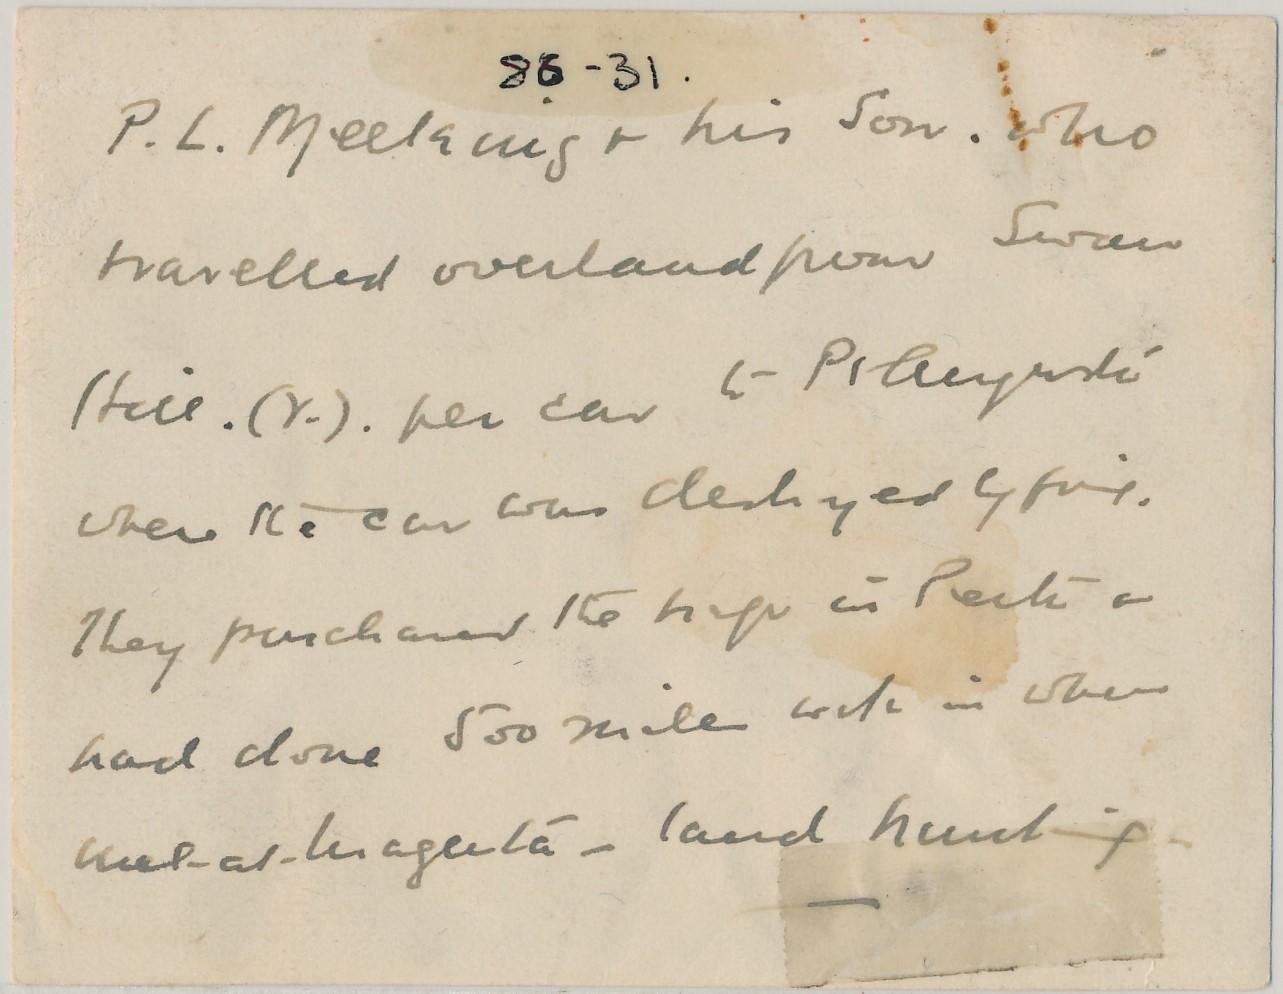 86-31.
P. L. Meeking & his Son. who
travelled overland from Swan
Hill. (V.). per car to Pt Augusta
where the car was destroyed by fire.
They purchased the in Perth &
had done 500 miles with it when
met-at-Magenta - land hunting-